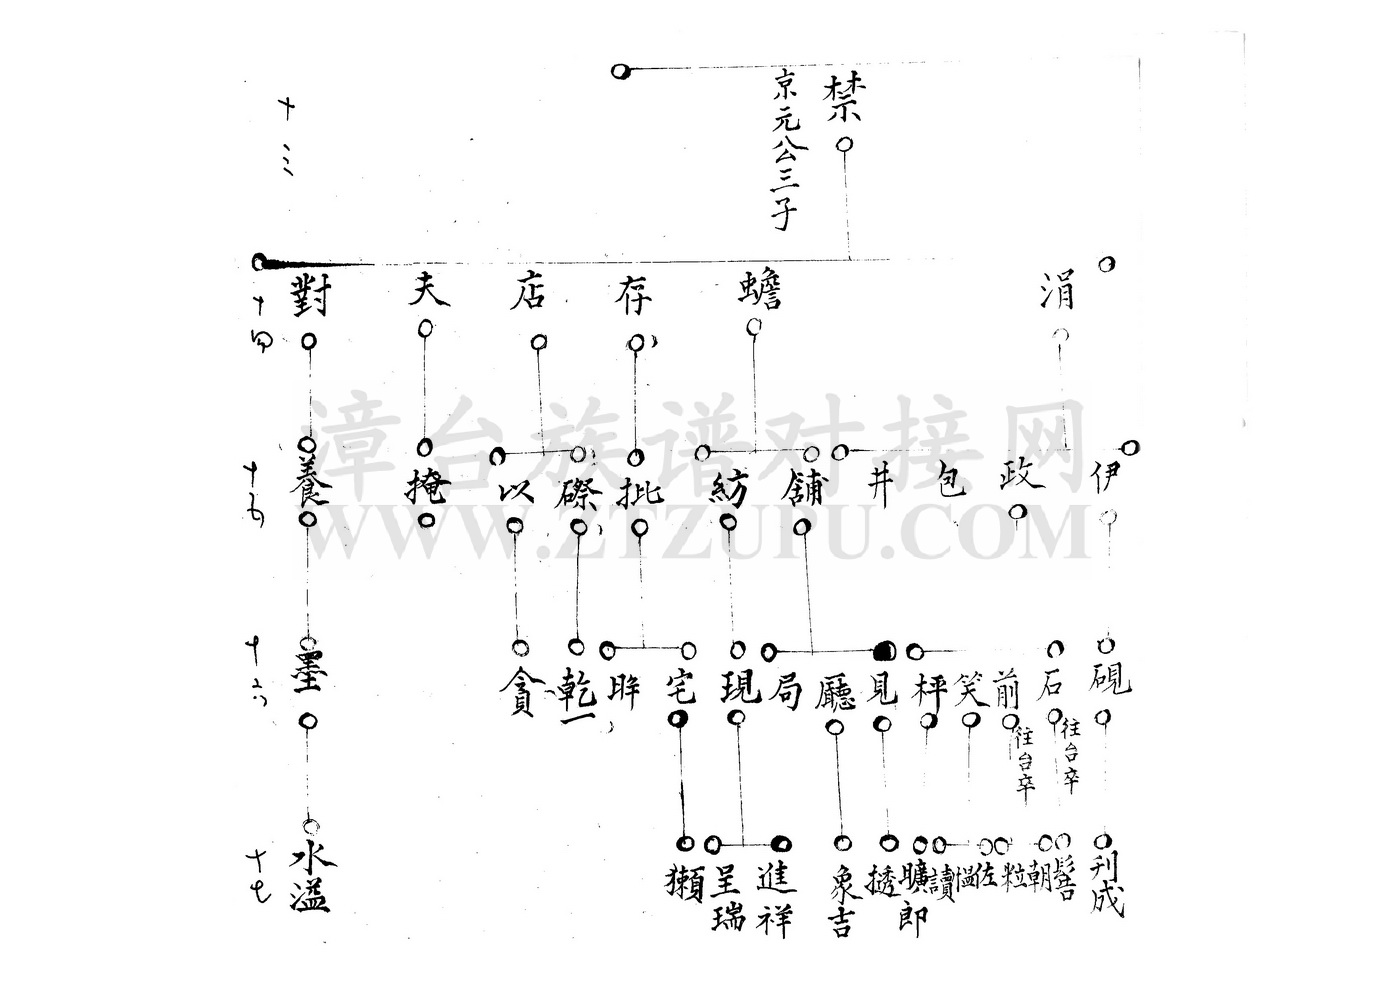 十三
禁
京元公三子
十四
涓
蟾
存
店
夫
對
十五
伊
政
包
井
舖
紡
批
磜
以
掩
養
漳台族谱对接网
WWW.ZTZUPU.COM
十六
硯
石
往台卒
前
往台卒
笑
枰
見
廳
局
現
宅
眸
乾一
貪
墨
十七
刊成
髻
朝
粒
佐
愠
讀
曠郎
透
象吉
進祥
呈瑞
獺
水溢